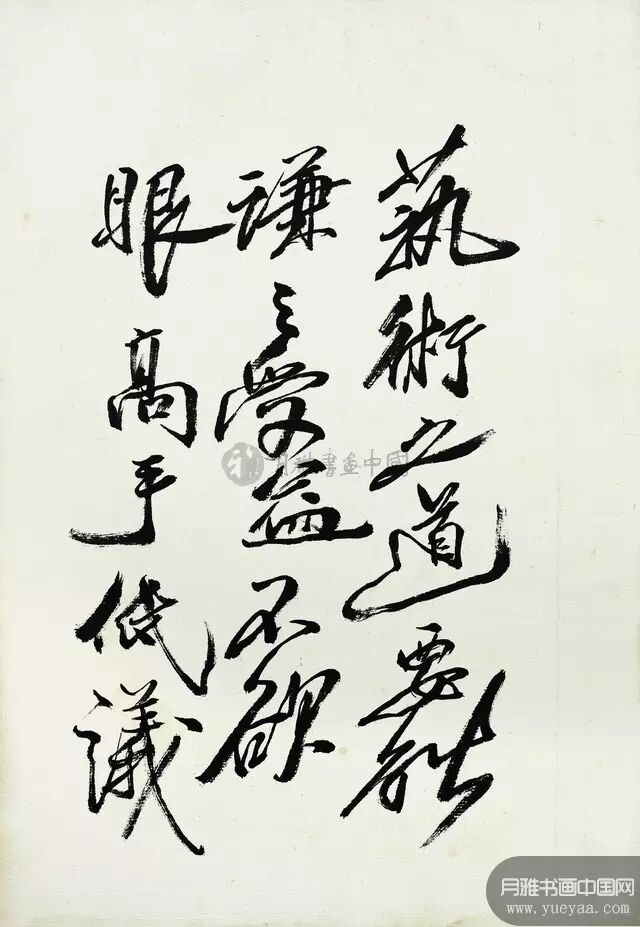 藝術之道要能
謙〻受益不欲
眼高手低議
月雅書畫中國
月雅书画中国网
www.yueyaa.com